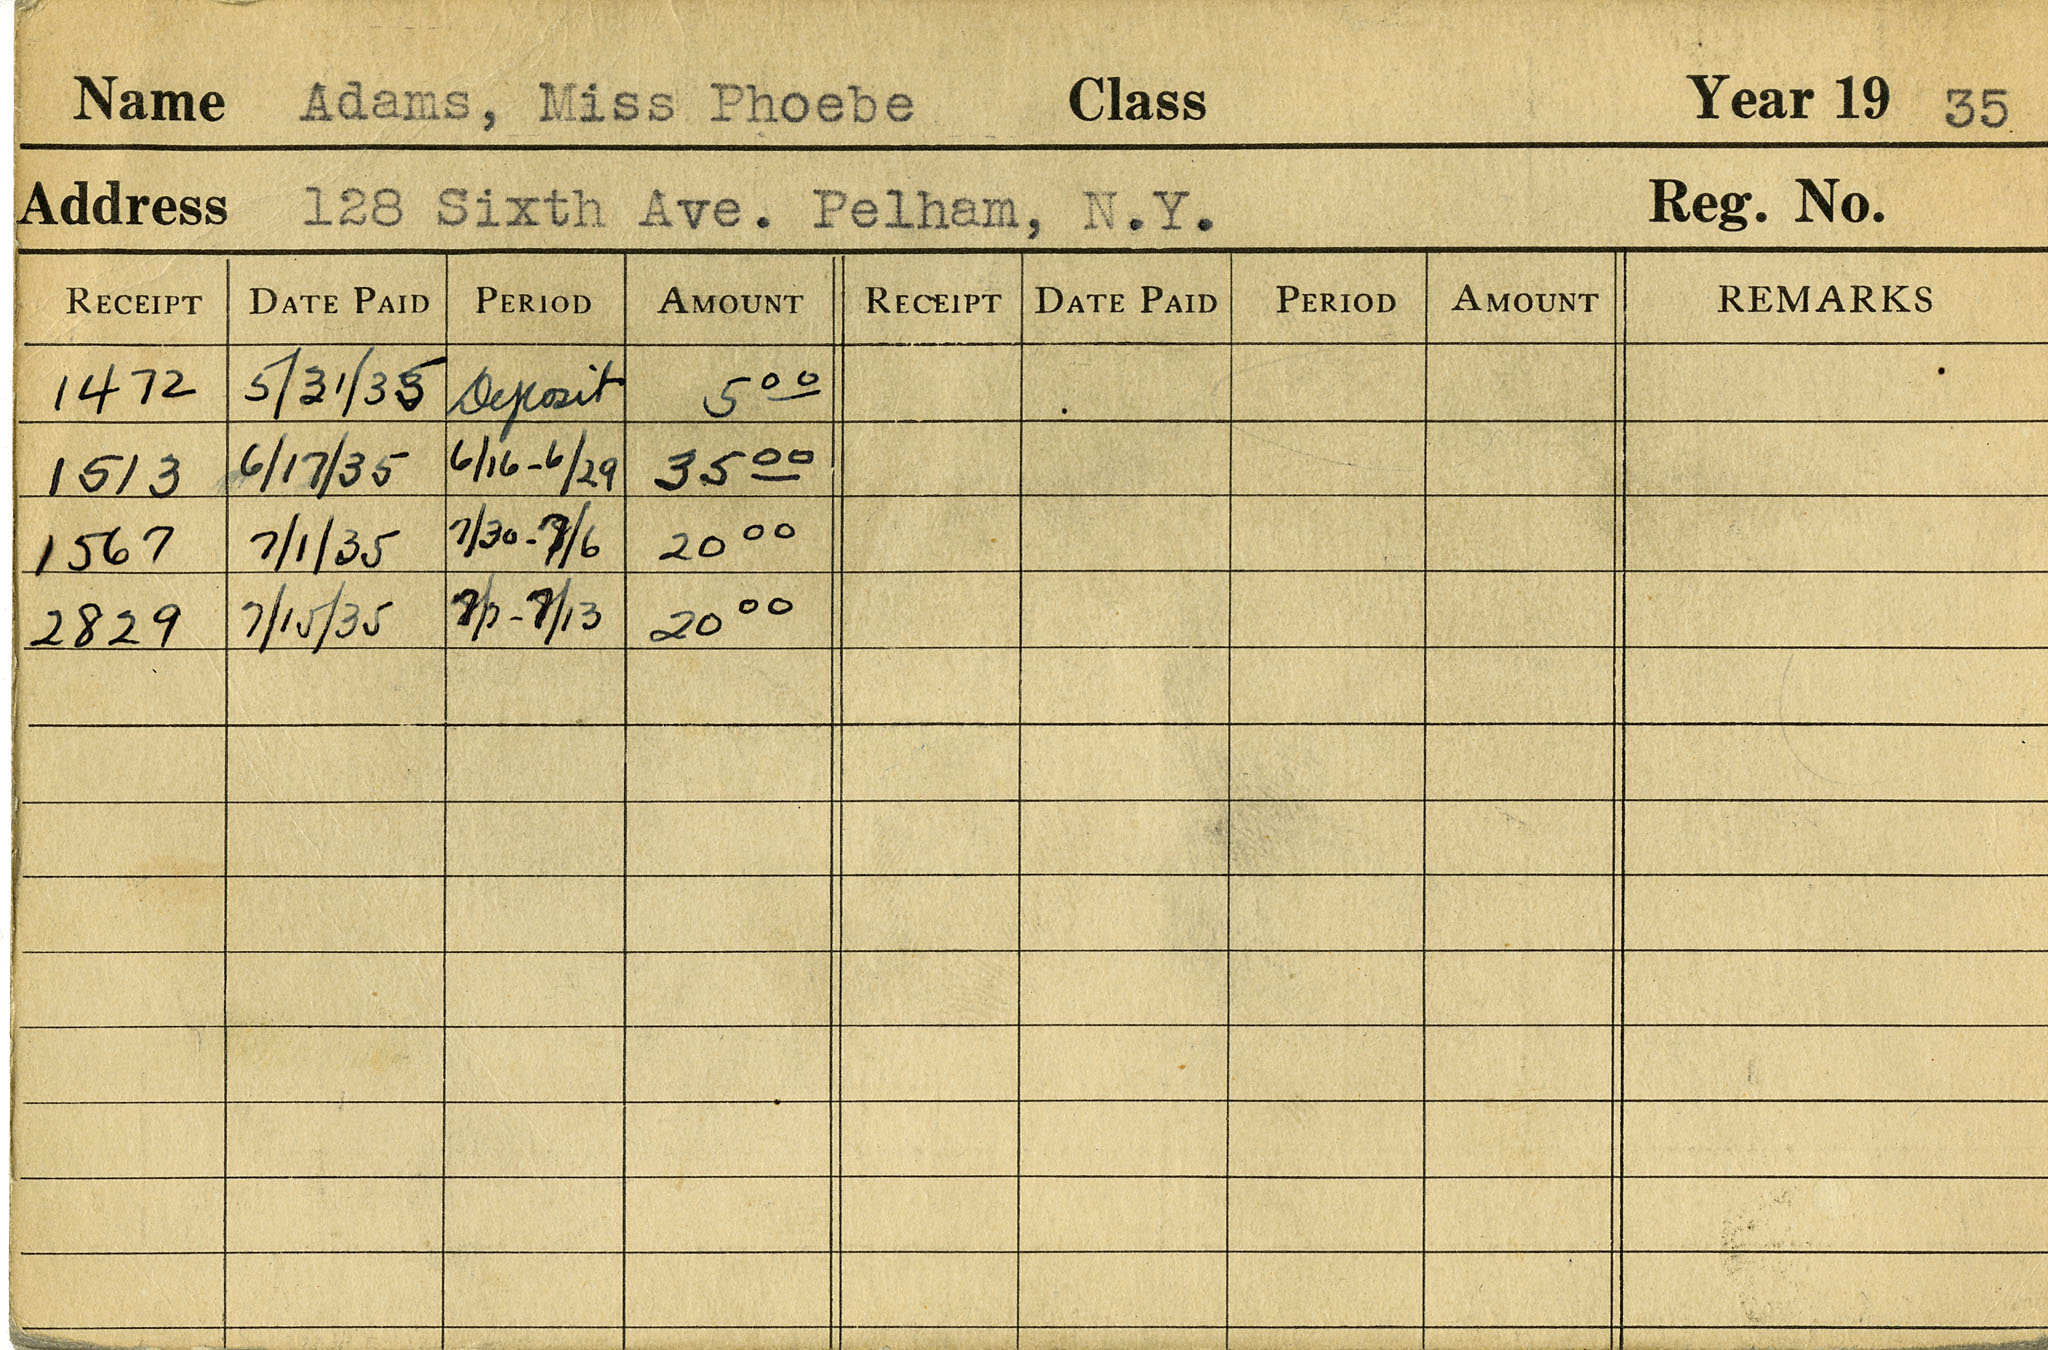 Name Adams, Miss Phoebe Class Year 19 35
Address 128 Sixth Ave. Pelham, N.Y. Reg. No.
RECEIPT DATE PAID PERIOD AMOUNT RECEIPT DATE PAID PERIOD AMOUNT REMARKS
1472 5/31/35 Deposit 5 00
1513 6/17/35 6/16-6/29 35 00
1567 7/1/35 7/30-7/6 20 00
2829 7/15/35 20 00